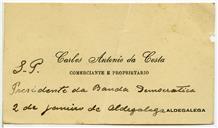 Carlos Antonio da Costa
S. P.
COMERCIANTE E PROPRIETARIO
Presidente da Banda Democratica
2 de janeiro de Aldegalega ALDEGALEGA